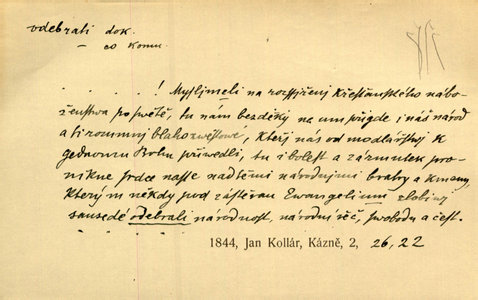 vdebrati dok.
– co komu.
. . . . . ! Mysljmeli na rozssjřenj křesťanského nábo-
ženstwa po swětě, tu nám bezděky na um přigde i náš národ
a ti rozumnj blahozwěstowé, kteřj nás od modlářstwj k
gednomu Bohu přiwedli, tu i bolest a zármutek pro-
nikne srdce nasse nad těmi národnjmi hroby a kmeny,
kterým někdy pod zástěrau Ewangelium zlobiwj
sausedé odebrali národnost, národnj řeč, swobodu a čest.
1844, Jan Kollár, Kázně, 2, 26, 22